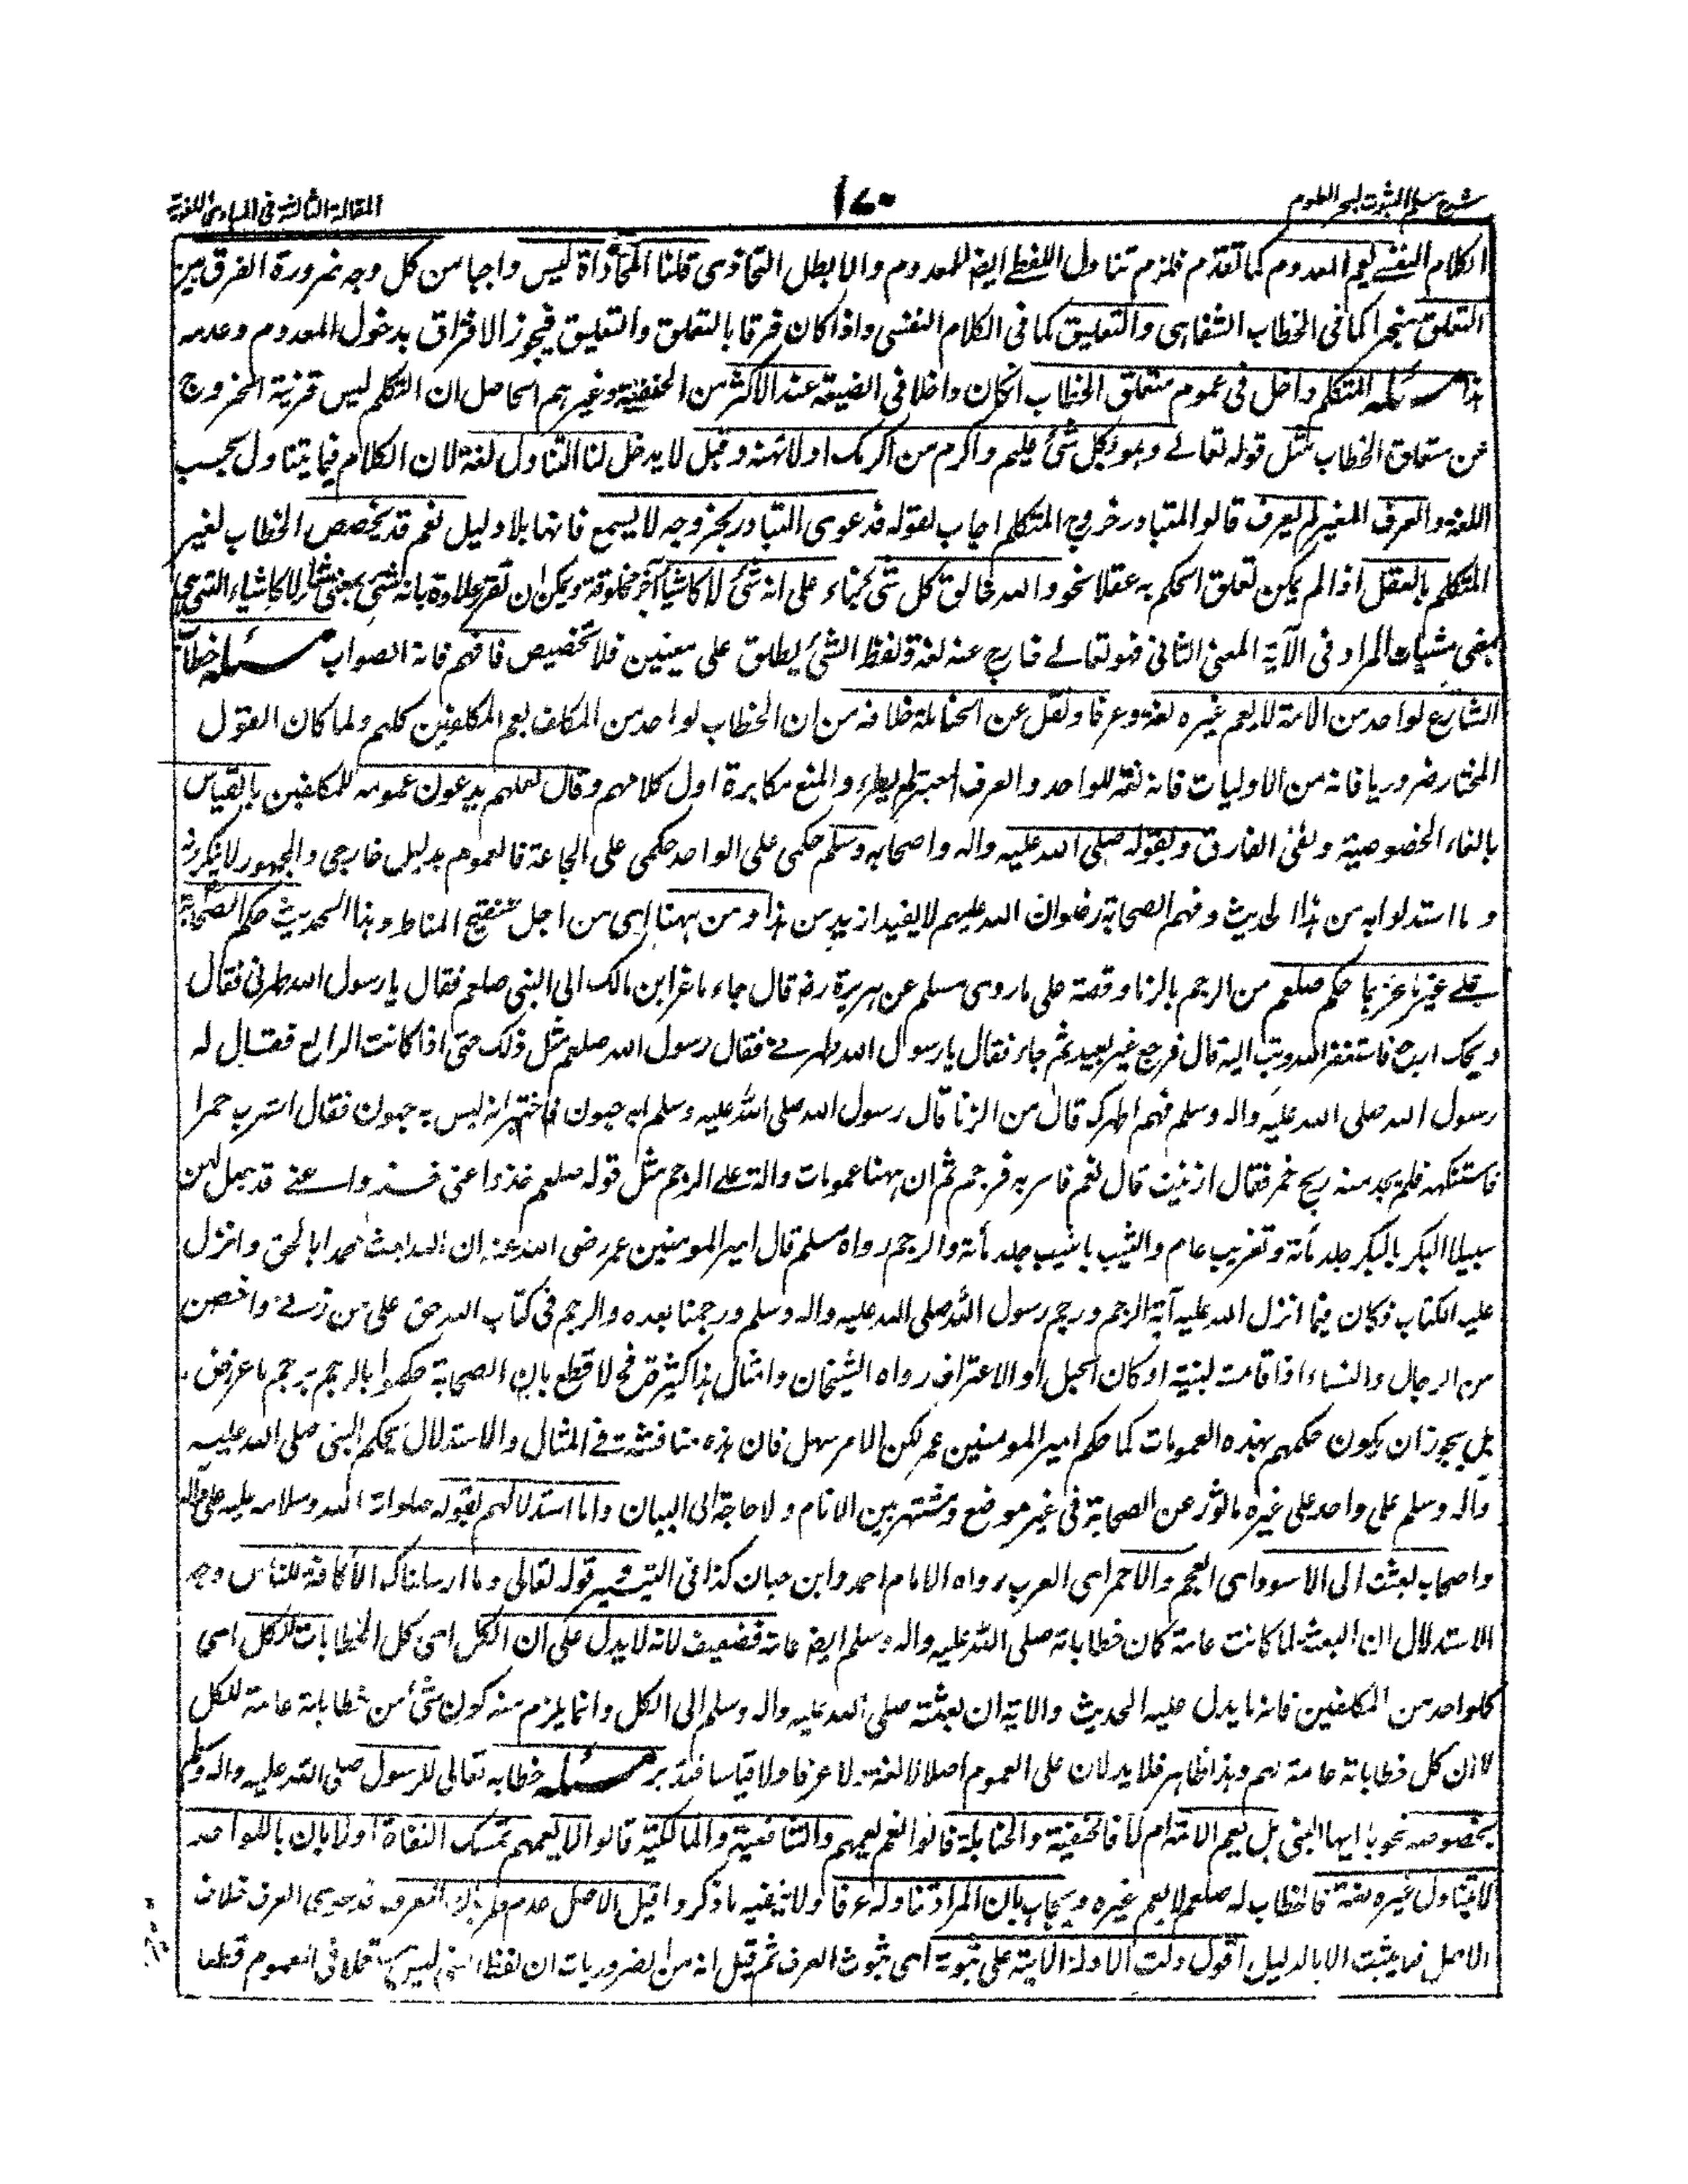 شرح مسلم الثبوت لبحر العلوم
١٧٠
المقالة الثالثة في المبادي اللغوية
الكلام النفسي يعم المعدوم كما تقدم فلزم تناول اللفظي ايضا للمعدوم والا بطل التحاذى قلنا المحاذاة ليس واجبا من كل وجه ضرورة الفرق بين
التعلق منجزا كما فى الخطاب الشفاهى والتعليق كما فى الكلام النفسى واذا كان فرقا بالتعلق والتعليق فيجوز الافتراق بدخول المعدوم وعدمه
هذا مسئلة المتكلم داخل فى عموم متعلق الخطاب انكان داخلا فى الصيغة عند الاكثر من الحنفية وغيرهم الحاصل ان التكلم ليس قرينة الخروج
عن متعلق الخطاب مثل قوله تعالے وهو بكل شئ عليم واكرم من اكرمك او لا تهنه وقيل لا يدخل لنا التناول لغة لان الكلام فيما يتناول بحسب
اللغة والعرف المغير لم يعرف قالوا المتبادر خروج المتكلم اجاب بقوله فدعوى التبادر بخروجه لا يسمع فانها بلا دليل نعم قد يخصص الخطاب لغير
المتكلم بالعقل اذا لم يكن تعلق الحكم به عقلا نحو والله خالق كل شئ بناء على انه شئ لا كاشياء أخر مخلوقة ويمكن ان تقرر علاوة بانه شئ بمعنى شاء لا كاشياء التى هى
بمعنى مشيات المراد فى الآية المعنى الثانى فهو تعالے خارج عنه لغة ولفظ الشئ يطلق على معنيين فلا تخصيص فافهم فانه الصواب مسئلة خطاب
الشارع لواحد من الامة لا يعم غيره لغة وعرفا ونقل عن الحنابلة خلافه من ان الخطاب لواحد من المكلف يعم المكلفين كلهم ولما كان القول
المختار ضروريا فانه من الاوليات فانه لغة للواحد والعرف المغير لم يطرء والمنع مكابرة اول كلامهم وقال لعلهم يدعون عمومه للمكلفين بالقياس
بالغاء الخصوصية ونفى الفارق وبقوله صلى الله عليه واله واصحابه وسلم حكمى على الواحد حكمى على الجماعة فالعموم بدليل خارجى والجمهور لا ينكرونه
و ما استدلوا به من هذا الحديث وفهم الصحابة رضوان الله عليهم لا يفيد ازيد من هذا ومن ههنا اى من اجل تنقيح المناط وهذا الحديث حكم الصحابة
على غير ماعز بما حكم صلعم من الرجم بالزنا وقصته على ما روى مسلم عن بريدة رضـ قال جاء ماعز ابن مالك الى النبى صلعم فقال يا رسول الله طهرنى فقال
ويحك ارجع فاستغفر الله وتب اليه قال فرجع غير بعيد ثم جاء فقال يا رسول الله طهرنے فقال رسول الله صلعم مثل ذلك حتى اذا كانت الرابع فقال له
رسول الله صلى الله عليه واله وسلم فبم اطهرك قال من الزنا قال رسول الله صلى الله عليه وسلم ابه جنون فاختبر انه ليس به جنون فقال اشرب خمرا
فاستنكهه فلم يجد منه ريح خمر فقال ازنيت قال نعم فامر به فرجم ثم ان ههنا عمومات دالة على الرجم مثل قوله صلعم خذوا عنى خذوا عنے قد جعل لهن
سبيلا البكر بالبكر جلد مأئة وتغريب عام والثيب بالثيب جلد مأئة والرجم رواه مسلم قال امير المومنين عمر رضى الله عنه ان الله بعث محمدا بالحق وانزل
عليه الكتاب فكان فيما انزل الله عليه آية الرجم ورجم رسول الله صلى الله عليه واله وسلم ورجمنا بعده والرجم فى كتاب الله حق على من زنے واحصن
من الرجال والنساء اذا قامت البينة او كان الحبل او الاعتراف رواه الشيخان وامثال هذا كثيرة فح لا قطع بان الصحابة حكموا بالرجم برجم ماعز رض
بل يجوز ان يكون حكمهم بهذه العمومات كما حكم امير المومنين عمر لكن الامر سهل فان هذه مناقشة فے المثال والاستدلال بحكم النبى صلى الله عليه
واله وسلم على واحد على غيره ماثور عن الصحابة فى غير موضع ومشتهر بين الانام ولا حاجة الى البيان واما استدلالهم بقوله صلوات الله وسلامه عليه وعلى آله
واصحابه بعثت الى الاسود اى العجم والاحمر اى العرب رواه الامام احمد وابن حبان كذا فى التيسير وقوله تعالى وما ارسلناك الا كافة للناس وجه
الاستدلال ان البعث لما كانت عامة كان خطاباته صلى الله عليه واله وسلم ايضا عامة فضعيف لانه لا يدل على ان الكل اى كل الخطابات للكل اى
كل واحد من المكلفين فانه ما يدل عليه الحديث والاية ان بعثته صلى الله عليه واله وسلم الى الكل وانما يلزم منه كون شئ من خطاباته عامة للكل
لا ان كل خطاباته عامة لهم وهذا ظاهر فلا يدلان على العموم اصلا لا لغة ولا عرفا ولا قياسا فتدبر مسئلة خطابه تعالى للرسول صلى الله عليه واله وسلم
بخصوصه نحو يا ايها النبى هل يعم الامة ام لا فالحنفية والحنابلة قالوا نعم يعمهم والشافعية والمالكية قالوا لا يعمهم تمسك النفاة اولا بان ما للواحد
لا يتناول غيره لغة فالخطاب له صلعم لا يعم غيره ويجاب بان المراد تناوله عرفا ولا ينفيه ما ذكر وا قيل الاصل عدم طريان العرف فدعوى العرف خلاف
الاصل فما يثبت الا بالدليل اقول دلت الادلة الاتية على ثبوته اى ثبوت العرف ثم قيل انه من الضروريات ان لفظ النبى ليس مستعملا فى العموم قطعا